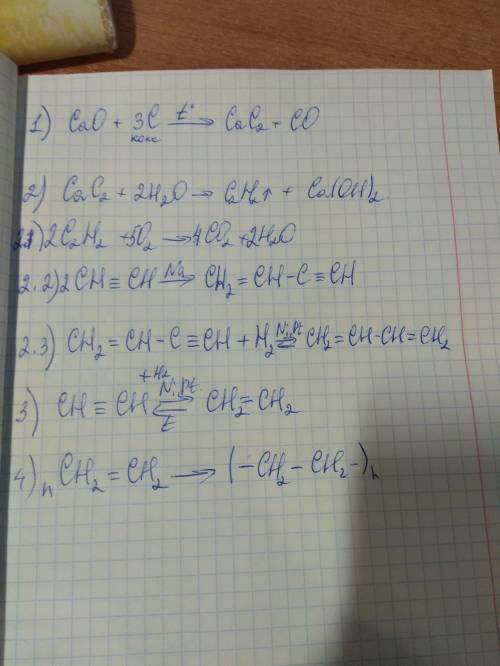 1) CaO + 3C кокс t° → CaC₂ + CO
2) CaC₂ + 2H₂O → C₂H₂↑ + Ca(OH)₂
2.1) 2C₂H₂ + 5O₂ → 4CO₂ + 2H₂O
2.2) 2CH ≡ CH Na → CH₂ = CH - C ≡ CH
2.3) CH₂ = CH - C ≡ CH + H₂ Ni,Pt ⇌ CH₂ = CH - CH = CH₂
3) CH ≡ CH +H₂ Ni,Pt ⇌ t CH₂ = CH₂
4) nCH₂ = CH₂ → (- CH₂ - CH₂ -)n